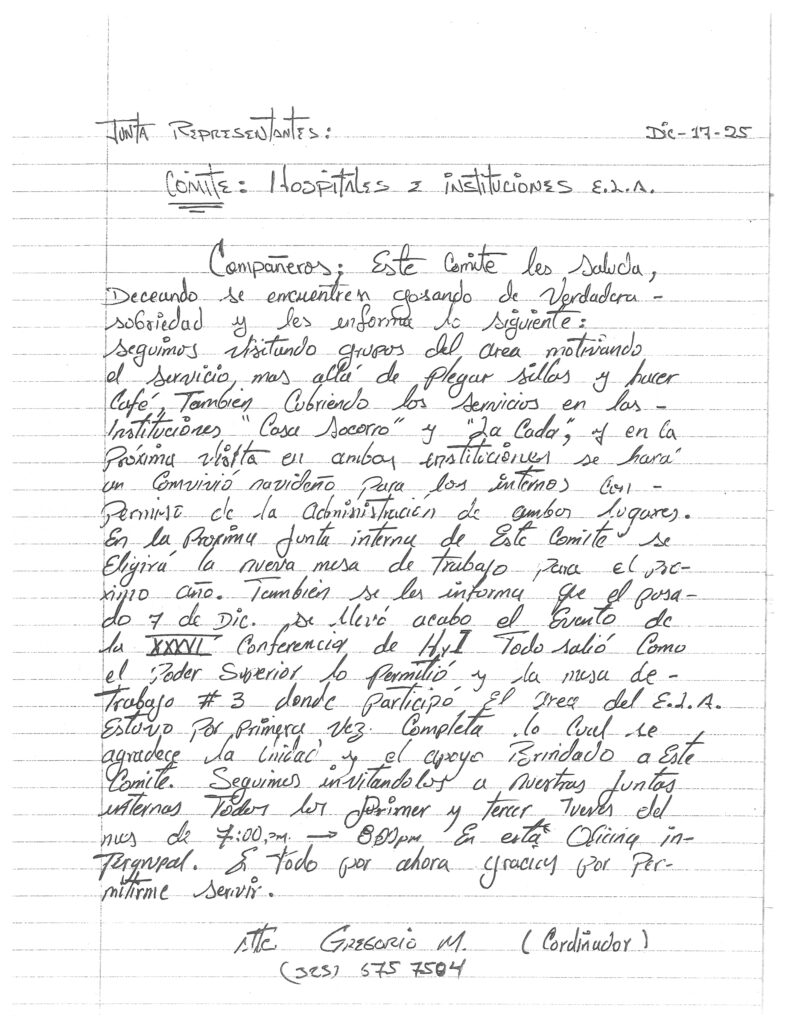 Junta Representantes: Dic-17-25
Comite: Hospitales e instituciones E.L.A.
Compañeros; Este Comite les saluda,
Deceando se encuentren gosando de Verdadera -
sobriedad y les informa lo siguiente:
seguimos visitando grupos del area motivando
el servicio, mas allá de plegar sillas y hacer
Café, También Cubriendo los servicios en las -
Instituciónes "Casa Socorro" y "La Cada", y en la
Próxima visita en ambas instituciónes se hará
un Convivió navideño para los internos con -
Permiso de la Administración de ambos lugares.
En la Proxima Junta interna de Este Comite se
Eligirá la nueva mesa de trabajo para el pro-
ximo año. También se les informa que el pasa-
do 7 de Dic. se llevó acabo el Evento de
la XXXVI Conferencia de HyI Todo salió Como
el Poder Superior lo Permitió y la mesa de -
Trabajo # 3 donde Participó El area del E.L.A.
Estuvo Por primera vez Completa lo Cual se
agradece la Unidad y el apoyo Brindado a Este
Comite. Seguimos invitandolos a nuestras Juntas
internas Todos los Primer y tercer Jueves del
mes de 7:00 pm. → 8:00pm En está Oficina in-
Tergrupal. Es Todo por ahora gracias por Per-
mitirme servir.
Atte. Gregorio M. (Cordinador)
(323) 675 7504